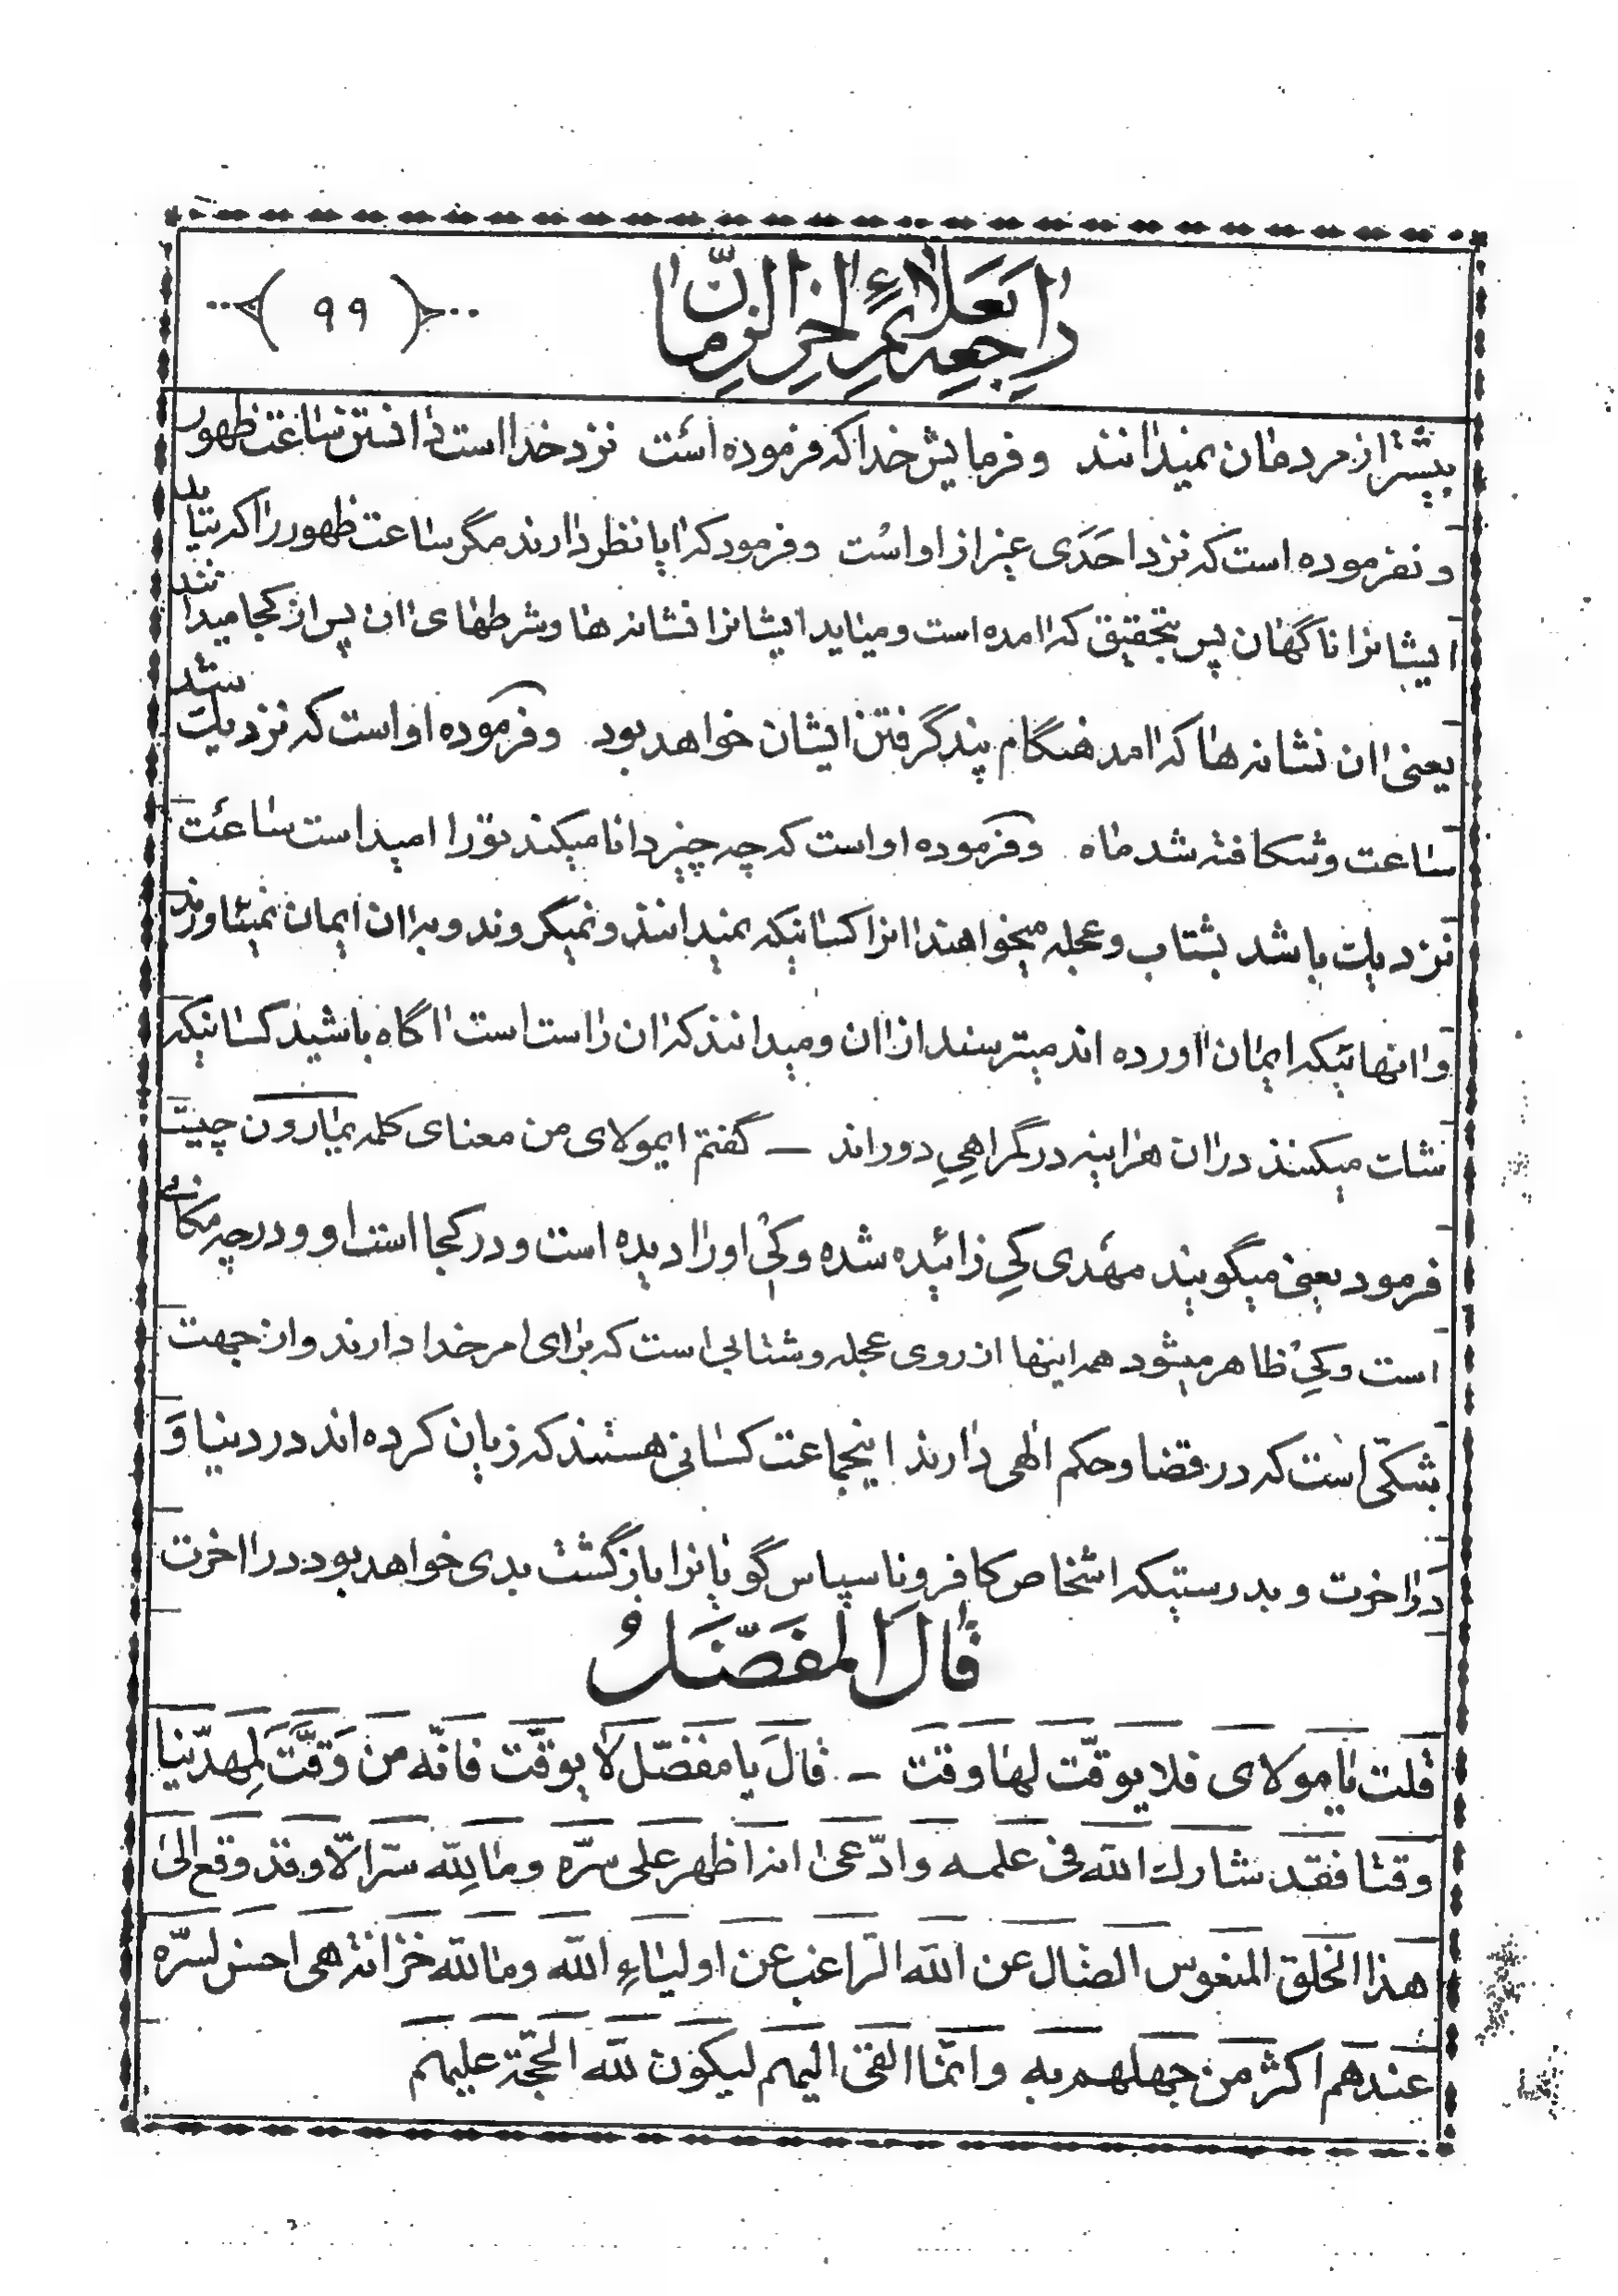 راجعه بعلائم اخر الزمان
( ۹۹ )
بیشتر از مردمان نمیدانند و فرمایش خدا که فرموده است نزد خدا است دانستن ساعت ظهور
و نفرموده است که نزد احدی غیر از او است و فرمود که ایا نظر دارند مگر ساعت ظهور را که بیاید
ایشانرا ناگهان پس بتحقیق که امده است و مینماید ایشانرا نشانه ها و شرطهای ان پس از کجا میدانند
یعنی ان نشانه ها که امد هنگام پند گرفتن ایشان خواهد بود و فرموده او است که نزدیک شد
ساعت و شکافته شد ماه و فرموده او است که چه چیز دانا میکند تو را امید است ساعت
نزدیک باشد بشتاب و عجله میخواهند انرا کسانیکه نمیدانند و نمیگروند و به ان ایمان نمیاورند
و انهائیکه ایمان اورده اند میترسند از ان و میدانند که ان راست است اگاه باشید کسانیکه
شک میکنند در ان هراینه در گمراهی دوراند — گفتم ایمولای من معنای کلمه یمارون چیست
فرمود یعنی میگویند مهدی کی زائیده شده و کی او را دیده است و در کجا است او و در چه مکانی
است و کی ظاهر میشود همه اینها از روی عجله و شتابی است که برای امر خدا دارند و از جهت
شکی است که در قضا و حکم الهی دارند اینجماعت کسانی هستند که زیان کرده اند در دنیا و
در اخرت و بدرستیکه اشخاص کافر و ناسپاس گویانرا بازگشت بدی خواهد بود در اخرت
قال المفضل
قلت یا مولای فلا یوقّت لها وقت — قال یا مفضّل لا یوقّت فانّه من وقّت لمهدّینا
وقتا فقد شارک الله فی علمه و ادّعی انه اظهر علی سرّه و ما لله سرّ الّا و قد وقع الی
هذا الخلق المنعوس الضال عن الله الراغب عن اولیاء الله و ما لله خزانة هی احسن لسرّه
عندهم اکثر من جهلهم به و انّما القی الیهم لیکون لله الحجّة علیهم